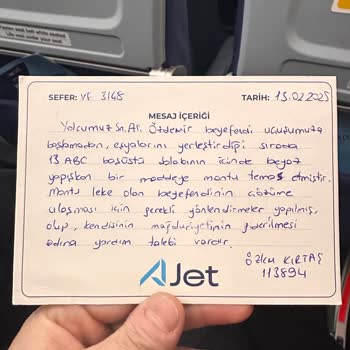 SEFER: VF 3148 TARİH: 13.02.2025
MESAJ İÇERİĞİ
Yolcumuz Sn. Al. Özdemir beyefendi uçuşumuza
başlamadan, eşyalarını yerleştirdiği sırada
13 ABC başüstü dolabının içinde beyaz
yapışkan bir maddeye montu temas etmiştir.
Montu leke olan beyefendinin çözüme
ulaşması için gerekli yönlendirmeler yapılmış
olup, kendisinin mağduriyetinin giderilmesi
adına yardım talebi vardır.
Özlem KIRTAŞ
113894
AJet